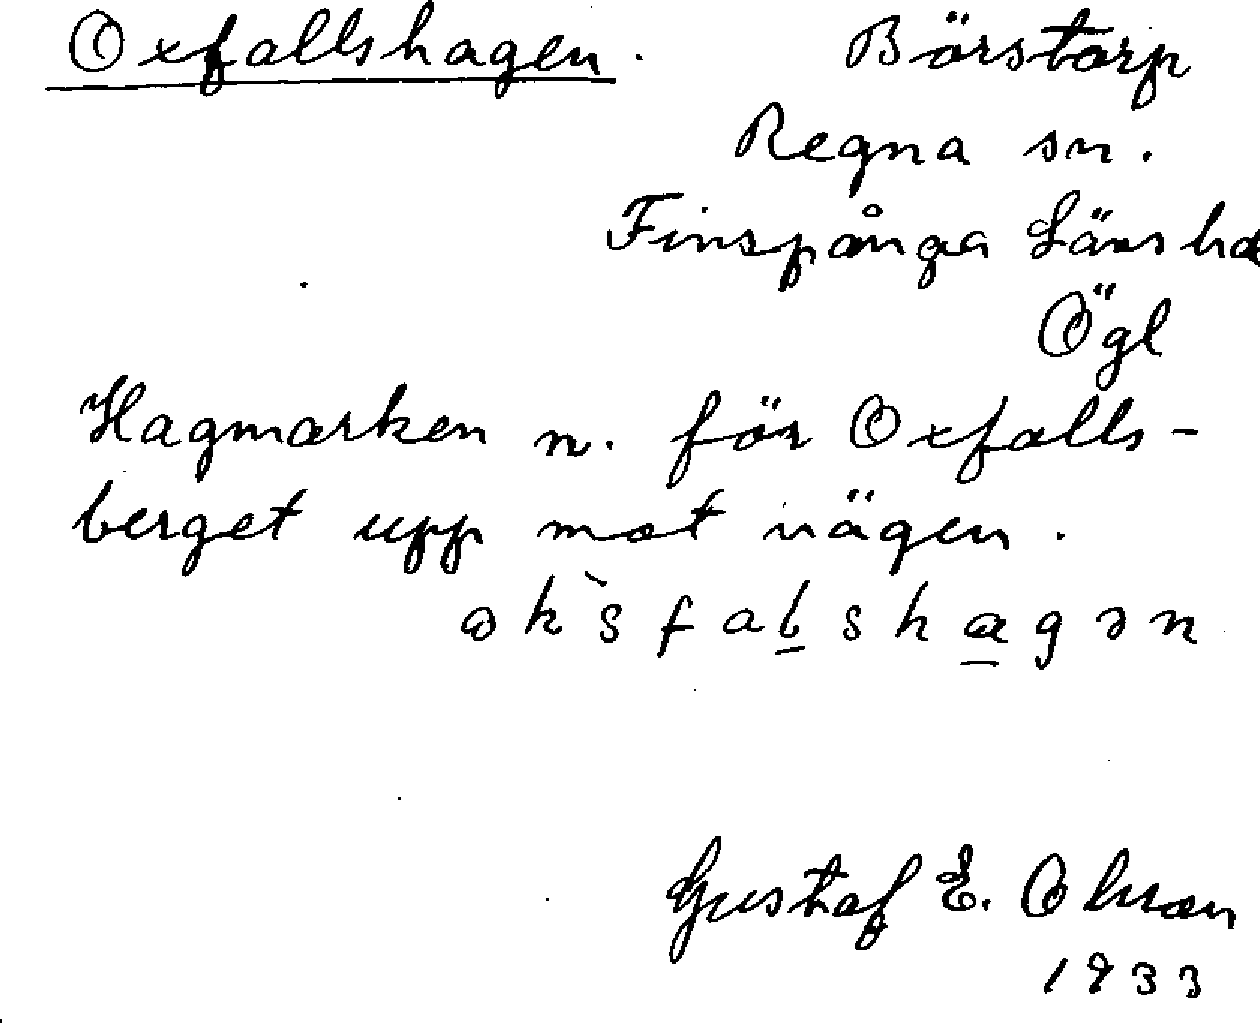 Oxfallshagen. Börstorp
Regna sn.
Finspånga Läns hd
Ögl
Hagmarken n. för Oxfalls-
berget upp mot vägen.
Gustaf E. Olsson
1933